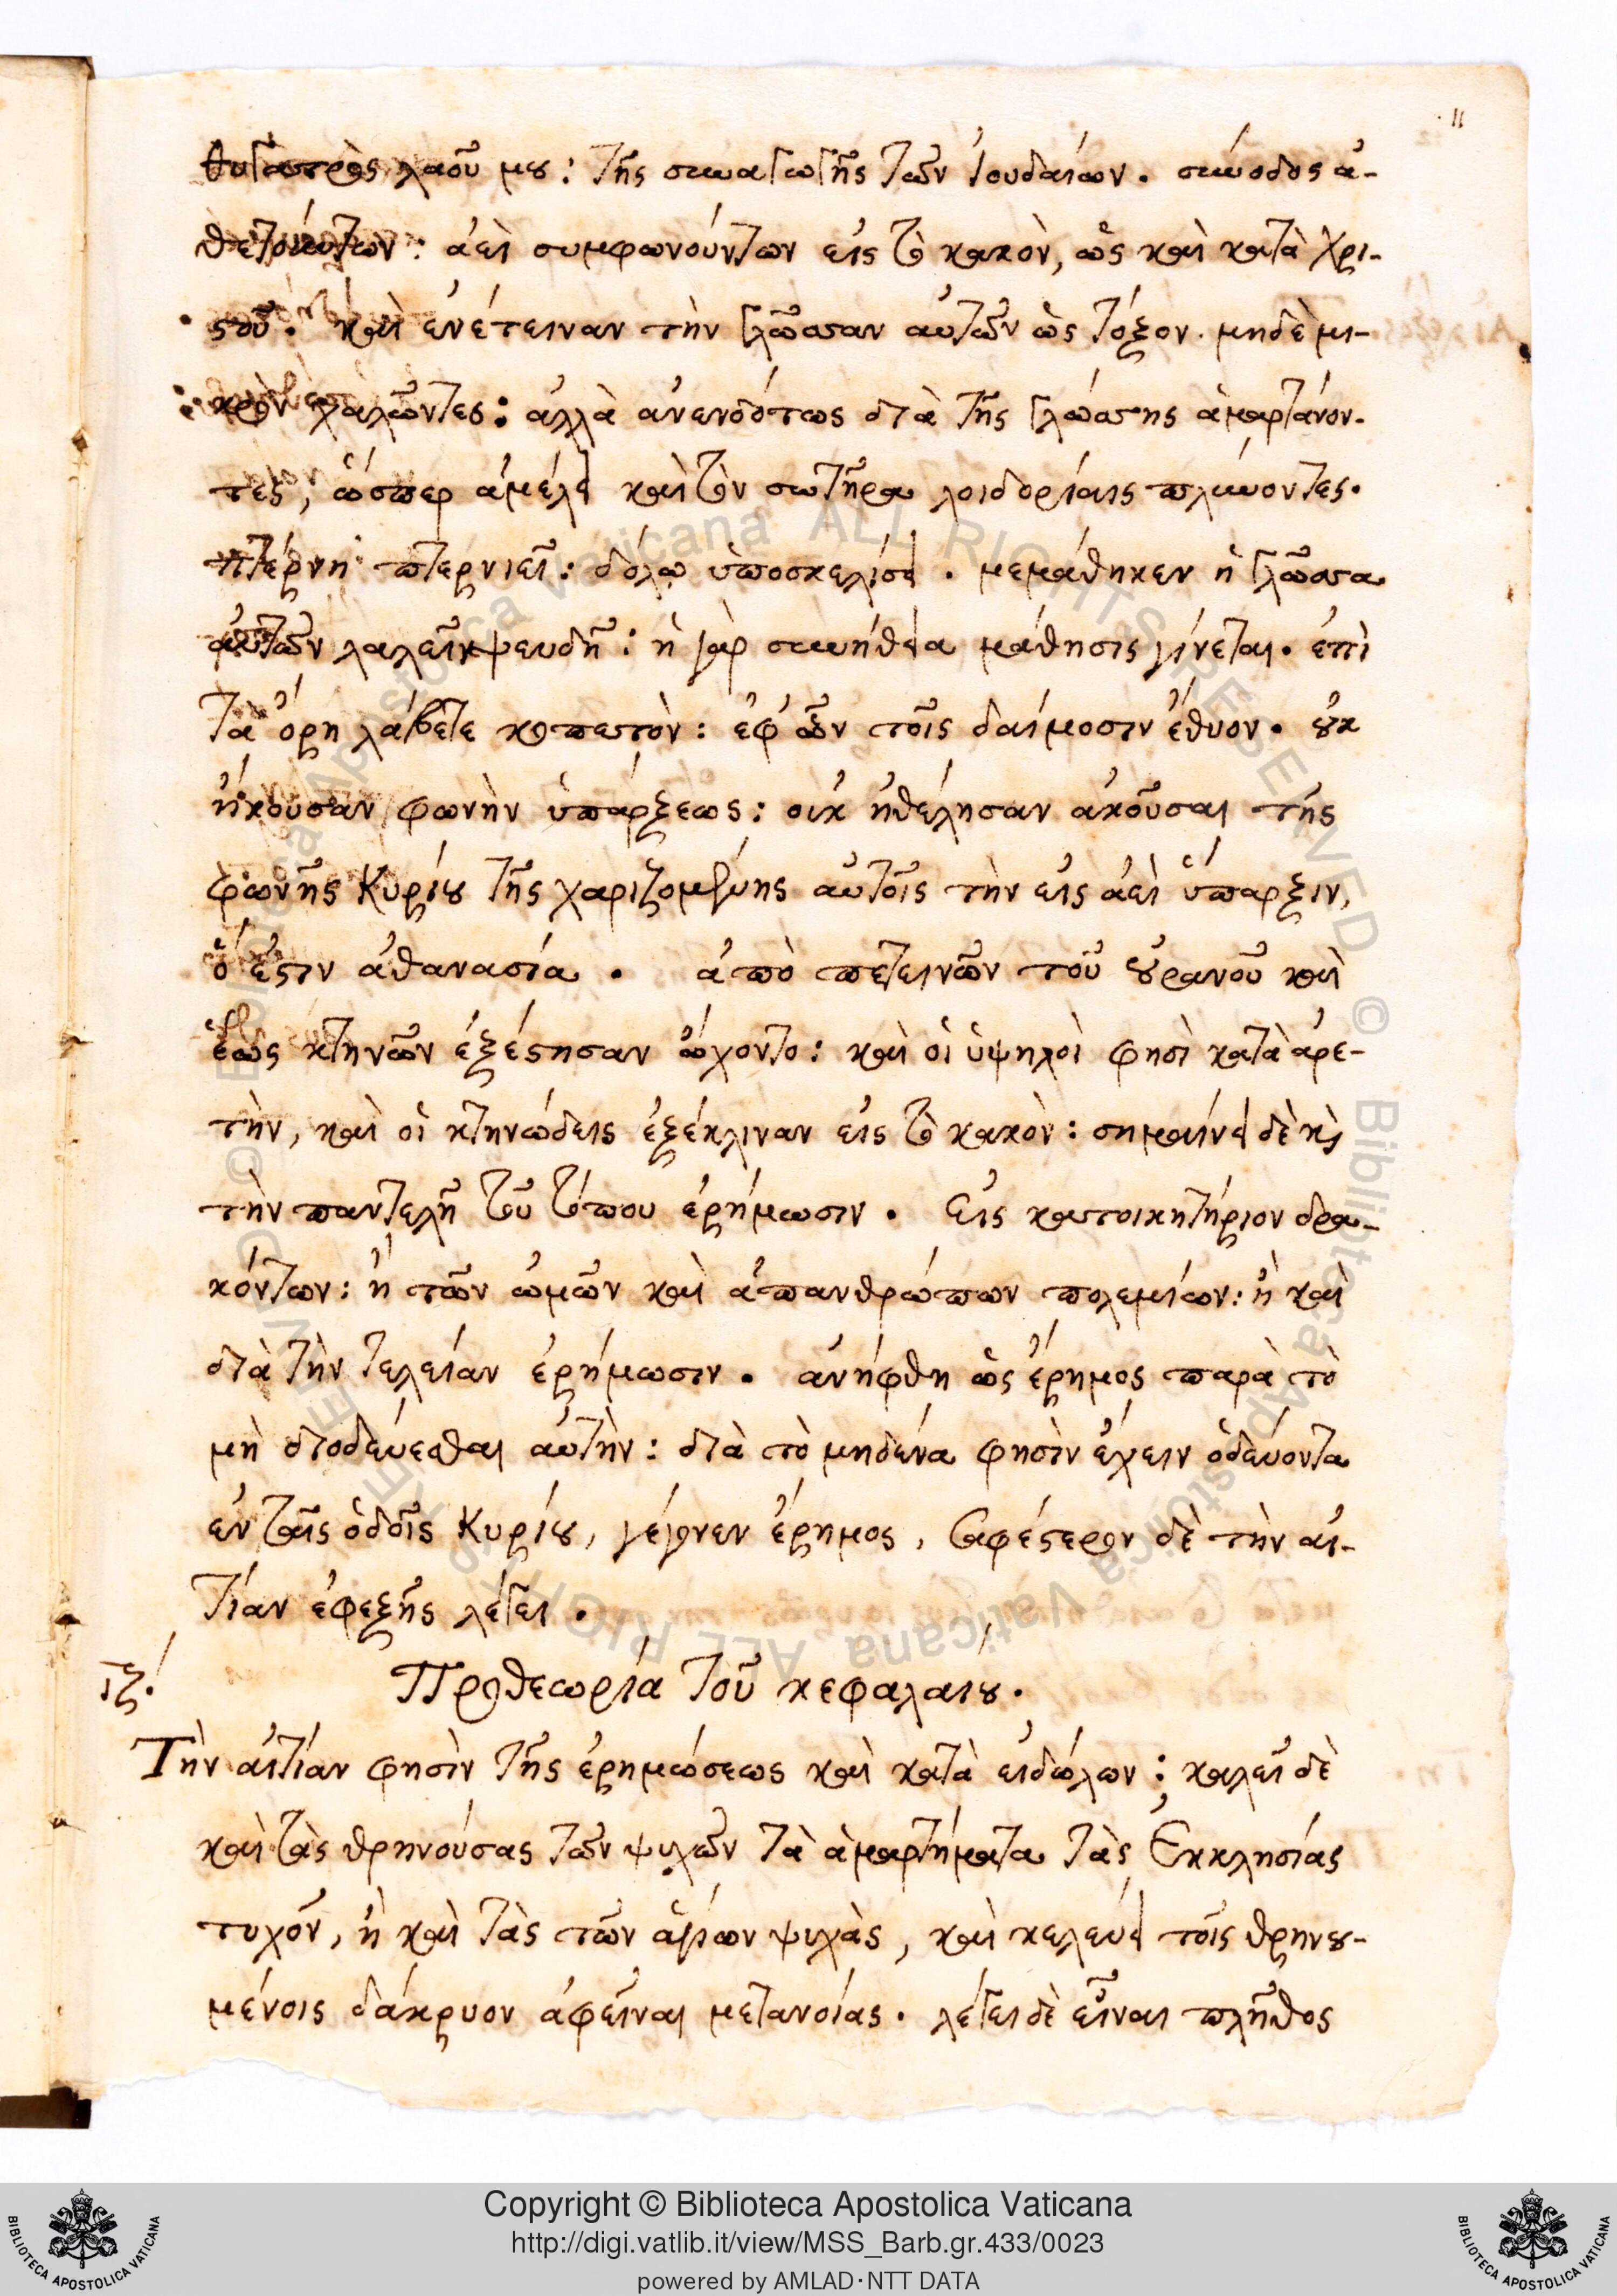 11
θυγατρὸς λαοῦ μου: τῆς συναγωγῆς τῶν Ἰουδαίων. σύνοδος ἀ-
θετούντων: ἀεὶ συμφωνούντων εἰς τὸ κακὸν, ὡς καὶ κατὰ Χρι-
στοῦ. καὶ ἐνέτειναν τὴν γλῶσσαν αὐτῶν ὡς τόξον. μηδὲ μι-
κρὸν χαλῶντες: ἀλλὰ ἀνενδότως διὰ τῆς γλώσσης ἁμαρτάνον-
τες, ὥσπερ ἀμέλει καὶ τὸν σωτῆρα λοιδορίαις πλύνοντες.
πτέρνῃ πτερνιεῖ: δόλῳ ὑποσκελίσει. μεμάθηκεν ἡ γλῶσσα
αὐτῶν λαλεῖν ψευδῆ: ἡ γὰρ συνήθεια μάθησις γίνεται. ἐπὶ
τὰ ὄρη λάβετε κοπετὸν: ἐφ' ὧν τοῖς δαίμοσιν ἔθυον. οὐκ
ἤκουσαν φωνὴν ὑπάρξεως: οὐκ ἠθέλησαν ἀκοῦσαι τῆς
φωνῆς Κυρίου τῆς χαριζομένης αὐτοῖς τὴν εἰς ἀεὶ ὕπαρξιν,
ὅ ἐστιν ἀθανασία. ἀπὸ πετεινῶν τοῦ οὐρανοῦ καὶ
ἕως κτηνῶν ἐξέστησαν ᾤχοντο: καὶ οἱ ὑψηλοὶ φησὶ κατὰ ἀρε-
τὴν, καὶ οἱ κτηνώδεις ἐξέκλιναν εἰς τὸ κακὸν: σημαίνει δὲ κὶ
τὴν παντελῆ τοῦ τόπου ἐρήμωσιν. Εἰς κατοικητήριον δρα-
κόντων: ἢ τῶν ὠμῶν καὶ ἀπανθρώπων πολεμίων: ἢ καὶ
διὰ τὴν τελείαν ἐρήμωσιν. ἀνήφθη ὡς ἔρημος παρὰ τὸ
μὴ διοδεύεσθαι αὐτὴν: διὰ τὸ μηδένα φησὶν ἔχειν ὁδεύοντα
ἐν ταῖς ὁδοῖς Κυρίου, γέγονεν ἔρημος, σαφέστερον δὲ τὴν αἰ-
τίαν ἐφεξῆς λέγει.
ιζ. Προθεωρία τοῦ κεφαλαίου.
Τὴν αἰτίαν φησὶν τῆς ἐρημώσεως καὶ κατὰ εἰδώλων: καλεῖ δὲ
καὶ τὰς θρηνούσας τῶν ψυχῶν τὰ ἁμαρτήματα τὰς Ἐκκλησίας
τυχὸν, ἢ καὶ τὰς τῶν ἁγίων ψυχὰς, καὶ κελεύει τοῖς θρηνου-
μένοις δάκρυον ἀφεῖναι μετανοίας. λέγει δὲ εἶναι πλῆθος
Copyright © Biblioteca Apostolica Vaticana
http://digi.vatlib.it/view/MSS_Barb.gr.433/0023
powered by AMLAD·NTT DATA